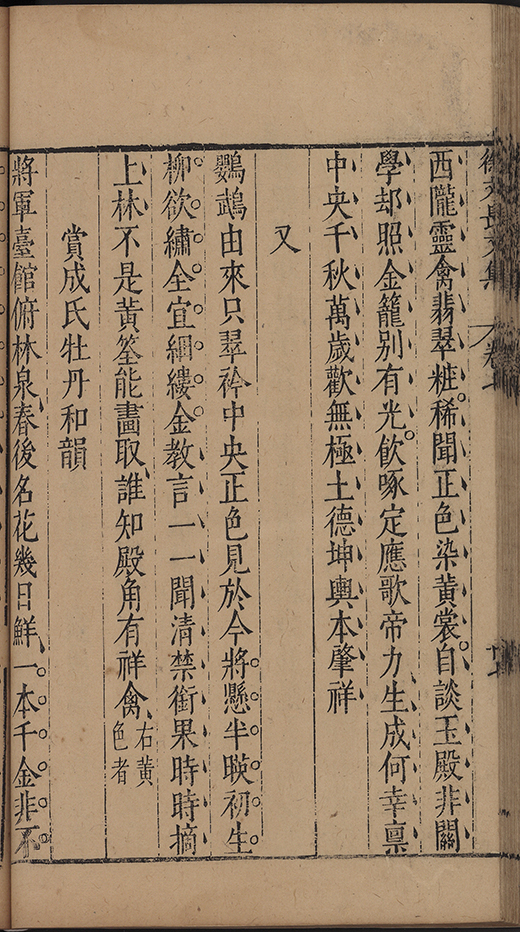 徐文長文集　卷七
西隴靈禽翡翠粧稀聞正色染黃裳自談玉殿非關
學却照金籠别有光飲啄定應歌帝力生成何幸禀
中央千秋萬歲歡無極土德坤輿本肇祥
又
鸚鵡由來只翠衿中央正色見於今將懸半暎初生
柳欲繡全宜細縷金教言一一聞清禁銜果時時摘
上林不是黃筌能畫取誰知殿角有祥禽右黃色者
賞成氏牡丹和韻
將軍臺館俯林泉春後名花幾日鮮一本千金非不